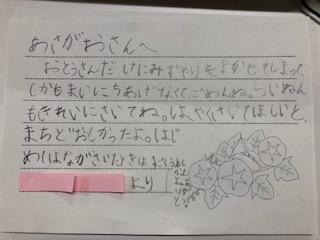 あさがおさんへ
おとうさんだけにみずやりをまかせてしまって、
しかもまいにちあげなくてごめんね。らいねん
もきれいにさいてね。はやくさいてほしいと、
まちどおしかったよ。はじ
めてはながさいたときはすごくうれし
かったよ。ありがとう。
より